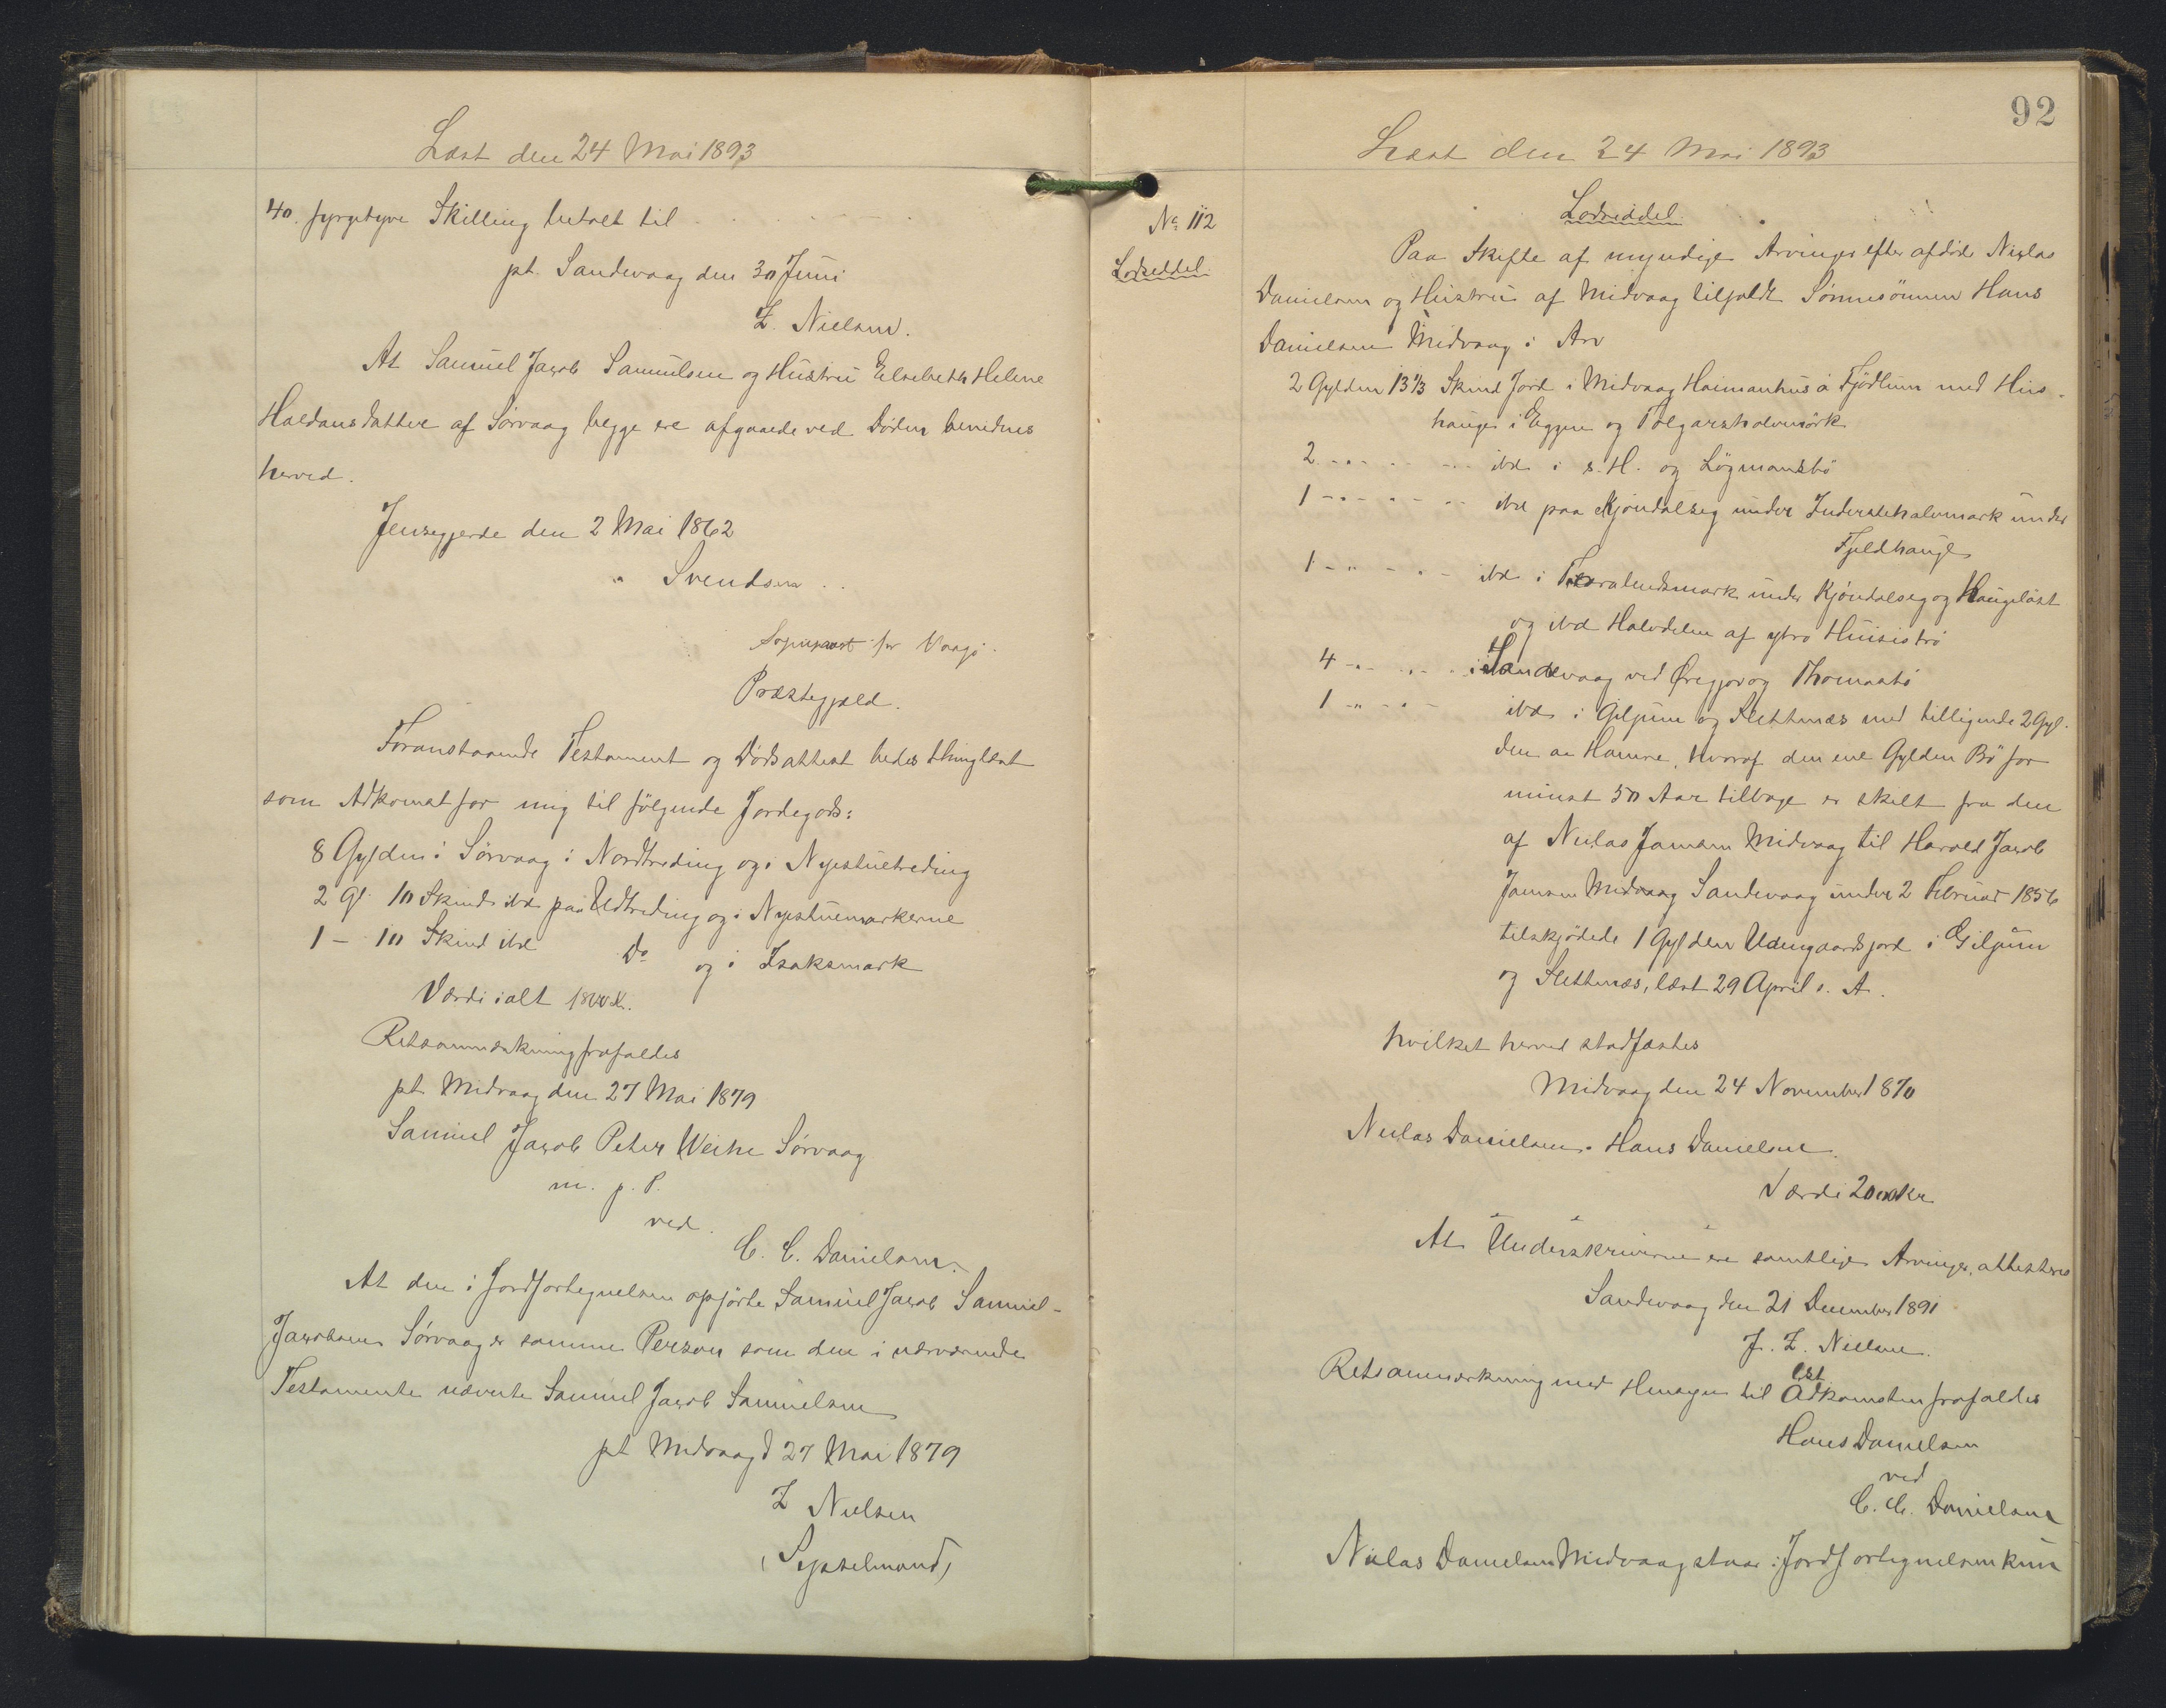 Læst den 24 Mai 1893
40. fyrgetyve Skilling betalt til
pt. Sandevaag den 30 Juni
Z. Nielsen.
At Samuel Jacob Samuelsen og Hustru Elsebeth Helene
Haldansdatter af Sørvaag begge ere afgaaede ved Døden bevidnes
herved.
Jensegjerde den 2 Mai 1862
Svendsen
Sognepræst for Vaagø
Præstegjæld.
Foranstaaende Testament og Dødsattest bedes thinglæst
som Adkomst for mig til følgende Jordegods:
8 Gylden i Sørvaag i Nordtreding og i Nyestuetreding
2 Gl. 10 Skind ibd paa Udtreding og i Nyestuemarkerne
1 - 10 Skind ibd Do og i Isaksmark
Værdi ialt 1800 Kr.
Retsanmærkning frafaldes
pt Midvaag den 27 Mai 1879
Samuel Jacob Peter Weihe Sørvaag
m. p. P.
ved
C. C. Danielsen.
At den i Jordfortegnelsen opførte Samuel Jacob Samuel-
Jacobsen Sørvaag er samme Person som den i nærværende
Testamente nævnte Samuel Jacob Samuelsen
pt Midvaag d 27 Mai 1879
Z Nielsen
(Sysselmand)
92
Læst den 24 Mai 1893
No 112
Lodseddel
Lodseddel
Paa Skifte af myndige Arvinger efter afdøde Niclas
Danielsen og Hustru af Midvaag tilfaldt Sønnesønnen Hans
Danielsen Midvaag i Arv
2 Gylden 13 1/3 Skind Jord i Midvaag Haimanhus á Fjødlum med Hus-
hauge i Eggen og Tolgarshalvmörk
2 - " - - ibd i s. H. og Lögmansbö
1 - " - - ibd paa Kjøndalseg under Inderstehalvmark under
Fjeldhauge
1 - " - - ibd i Taralendsmark under Kjøndalseg og Haugelöst
og ibd Halvdelen af ytro Huisiströ
4 - " - - i Sandevaag ved Øregjov og Thomasbö
1 - " - - ibd i Giljum og Slettenæs med tilligende 2 Gyl-
den aa Hamre, hvoraf den ene Gylden Bö for
minst 50 Aar tilbage er skilt fra den
af Niclas Joensen Midvaag til Harald Jacob
Joensen Midvaag Sandevaag under 2 Februar 1856
tilskjødede 1 Gylden Udengaardsjord i Giljum
og Slettenæs, læst 29 April s. A.
hvilket herved stadfæstes
Midvaag den 24 November 1870
Niclas Danielsen. Hans Danielsen.
Værdi 2000 Kr
At Underskriverne ere samtlige Arvinger, attesteres
Sandevaag den 21 December 1891
J. Z. Nielsen.
Retsanmærkning med Hensyn til Adkomsten frafaldes
Hans Danielsen
ved
C. C. Danielsen
Niclas Danielsen Midvaag staar i Jordfortegnelsen kun